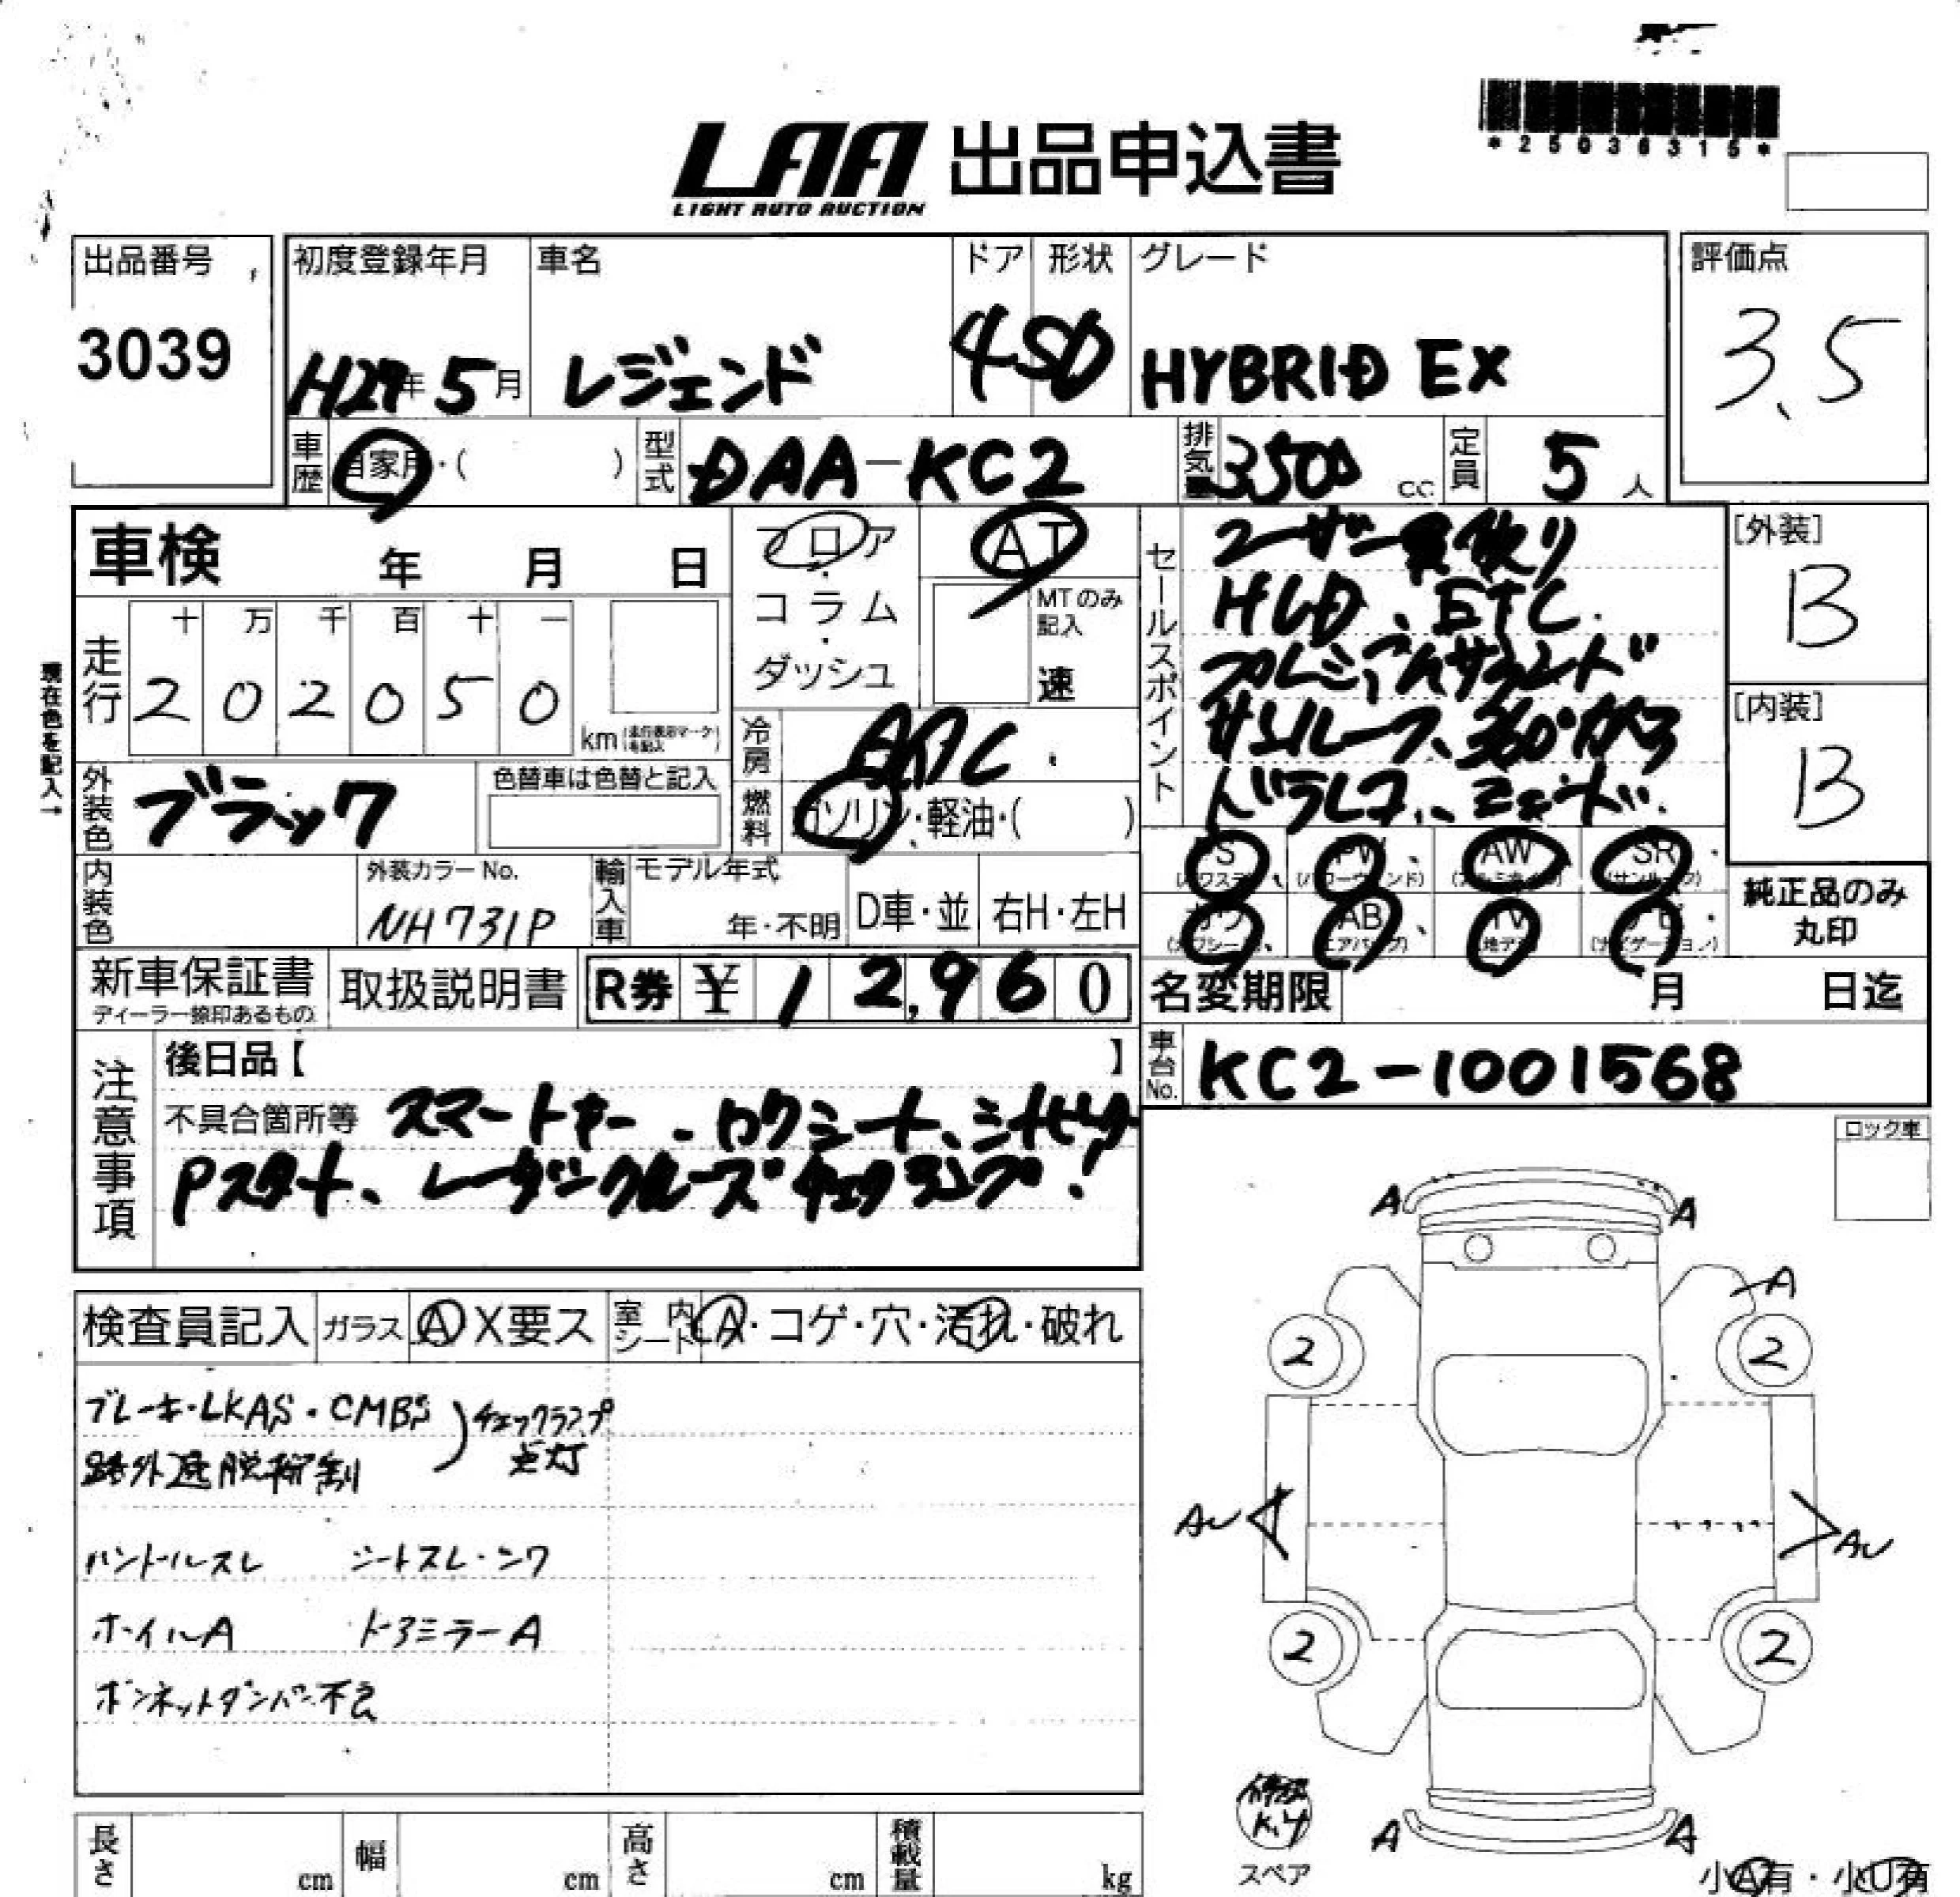 LAA 出品申込書
LIGHT AUTO AUCTION
*25036315*
出品番号
3039
初度登録年月 車名 ドア 形状 グレード
H27年5月 レジェンド 4 SD HYBRID EX
評価点
3.5
車歴 自家用・( ) 型式 DAA-KC2 排気量 3500 cc 定員 5人
車検 年 月 日
フロア・コラム・ダッシュ
AT
MTのみ記入
速
セールスポイント
ユーザー買取り
HLD、ETC.
プレミアムサウンド
サンルーフ、360°カメラ
ドラレコ、
[外装]
B
[内装]
B
現在色を記入→
走行
十 万 千 百 十 一
2 0 2 0 5 0
km(走行表示マークを記入)
冷房 AAC
燃料 ガソリン・軽油・( )
外装色 ブラック
色替車は色替と記入
PS (パワステ) PW (パワーウインド) AW (アルミホイル) SR (サンルーフ)
カワ (カワシート) AB (エアバッグ) TV (地デジ) ナビ (ナビゲーション)
純正品のみ丸印
内装色
外装カラーNo.
NH731P
輸入車 モデル年式
年・不明 D車・並 右H・左H
新車保証書
ディーラー捺印あるもの
取扱説明書 R券 ¥12,960
名変期限 月 日迄
車台No. KC2-1001568
注意事項
後日品【 】
不具合箇所等 スマートキー、
Pスタート、レーダークルーズ チェックランプ!
ロック車
検査員記入 ガラス A X要ス 室内シート A・コゲ・穴・汚れ・破れ
ブレーキ・LKAS・CMBS
路外逸脱抑制
チェックランプ
点灯
ハンドルスレ シートスレ・シワ
ホイルA ドアミラーA
ボンネットダンパー不良
A A
A
2 2
AU AU
2 2
A A
修理K.y
スペア
小A有・小U有
長さ cm 幅 cm 高さ cm 積載量 kg